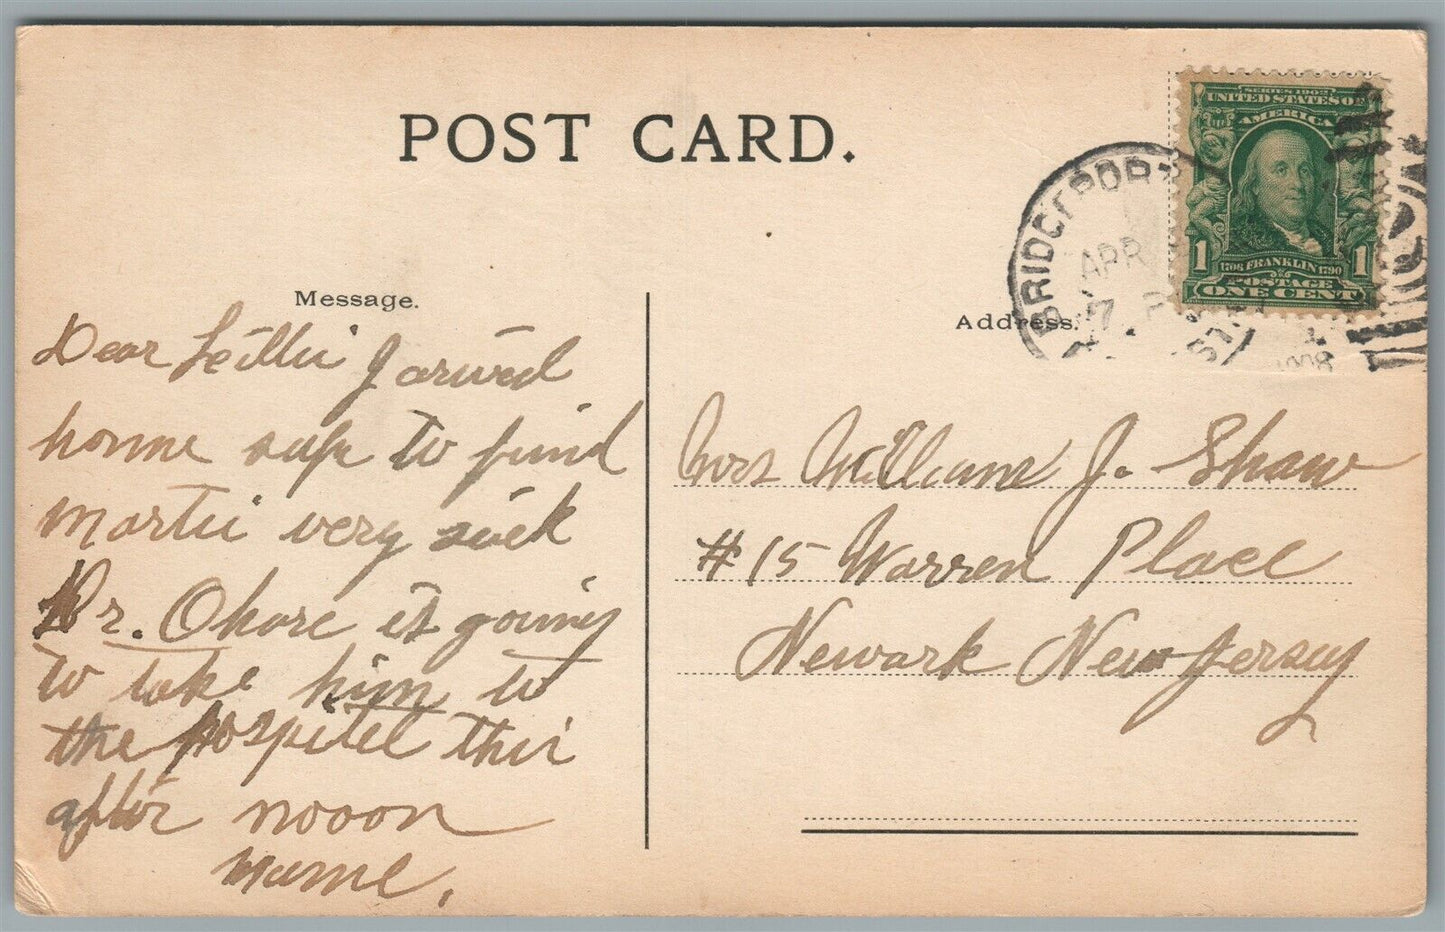 POST CARD.
SERIES 1902
UNITED STATES OF
AMERICA
1 1
1706 FRANKLIN 1790
POSTAGE
ONE CENT
BRIDGEPORT
APR
7
1908
Message.
Dear I arived
home safe to find
Martii very sick
Dr. Ohare is going
to take him to
the hospitel this
after nooon
Mame.
Address.
Mrs William J. Shaw
#15 Warren Place
Newark New Jersey